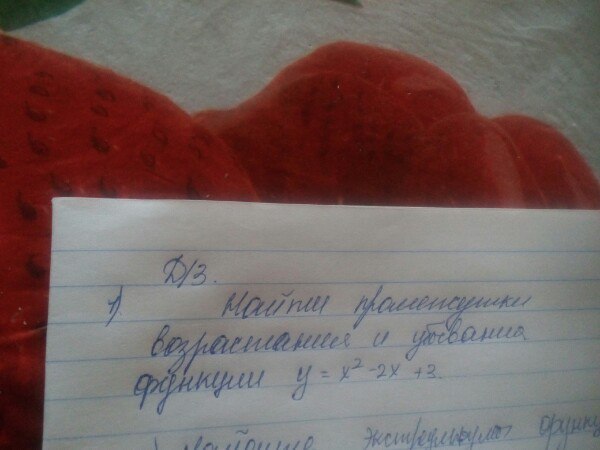 Д/З.
1) Найти промежутки
возрастания и убывания
функции y = x² -2x +3.
) Найдите экстремумы функц